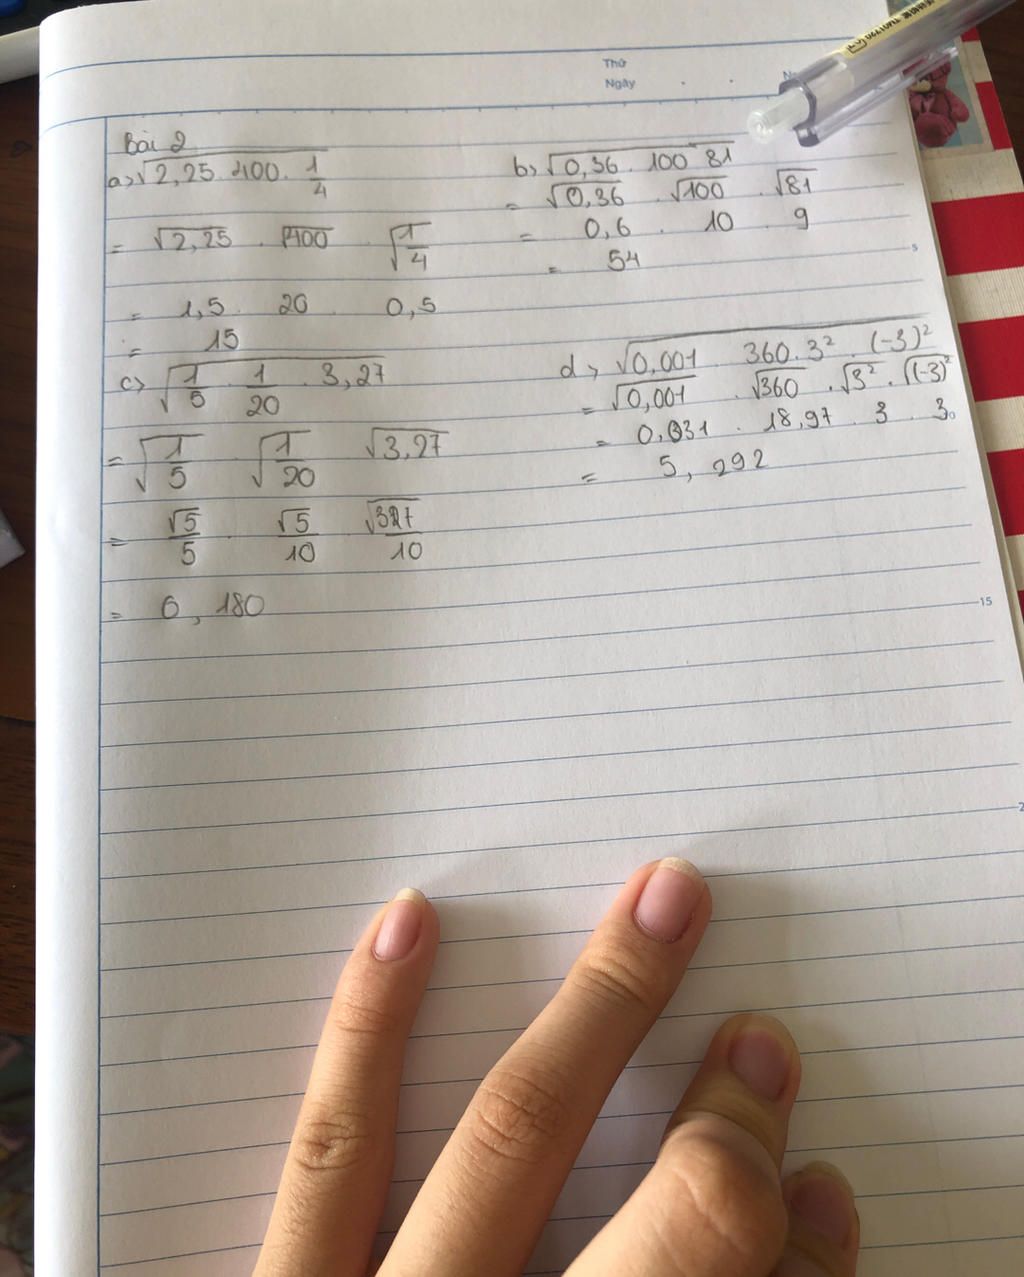 Thứ
Ngày
Bài 2
a> √2,25 . 400 . 1/4
= √2,25 . √400 . √1/4
= 1,5 . 20 . 0,5
= 15
b> √0,36 . 100 . 81
= √0,36 . √100 . √81
= 0,6 . 10 . 9
= 54
c> √1/5 . 1/20 . 3,27
= √1/5 √1/20 √3,27
= √5/5 . √5/10 √327/10
= 0,180
d> √0,001 . 360 . 3² . (-3)²
= √0,001 . √360 . √3² . √(-3)²
= 0,031 . 18,97 . 3 . 3
= 5,292
5
15